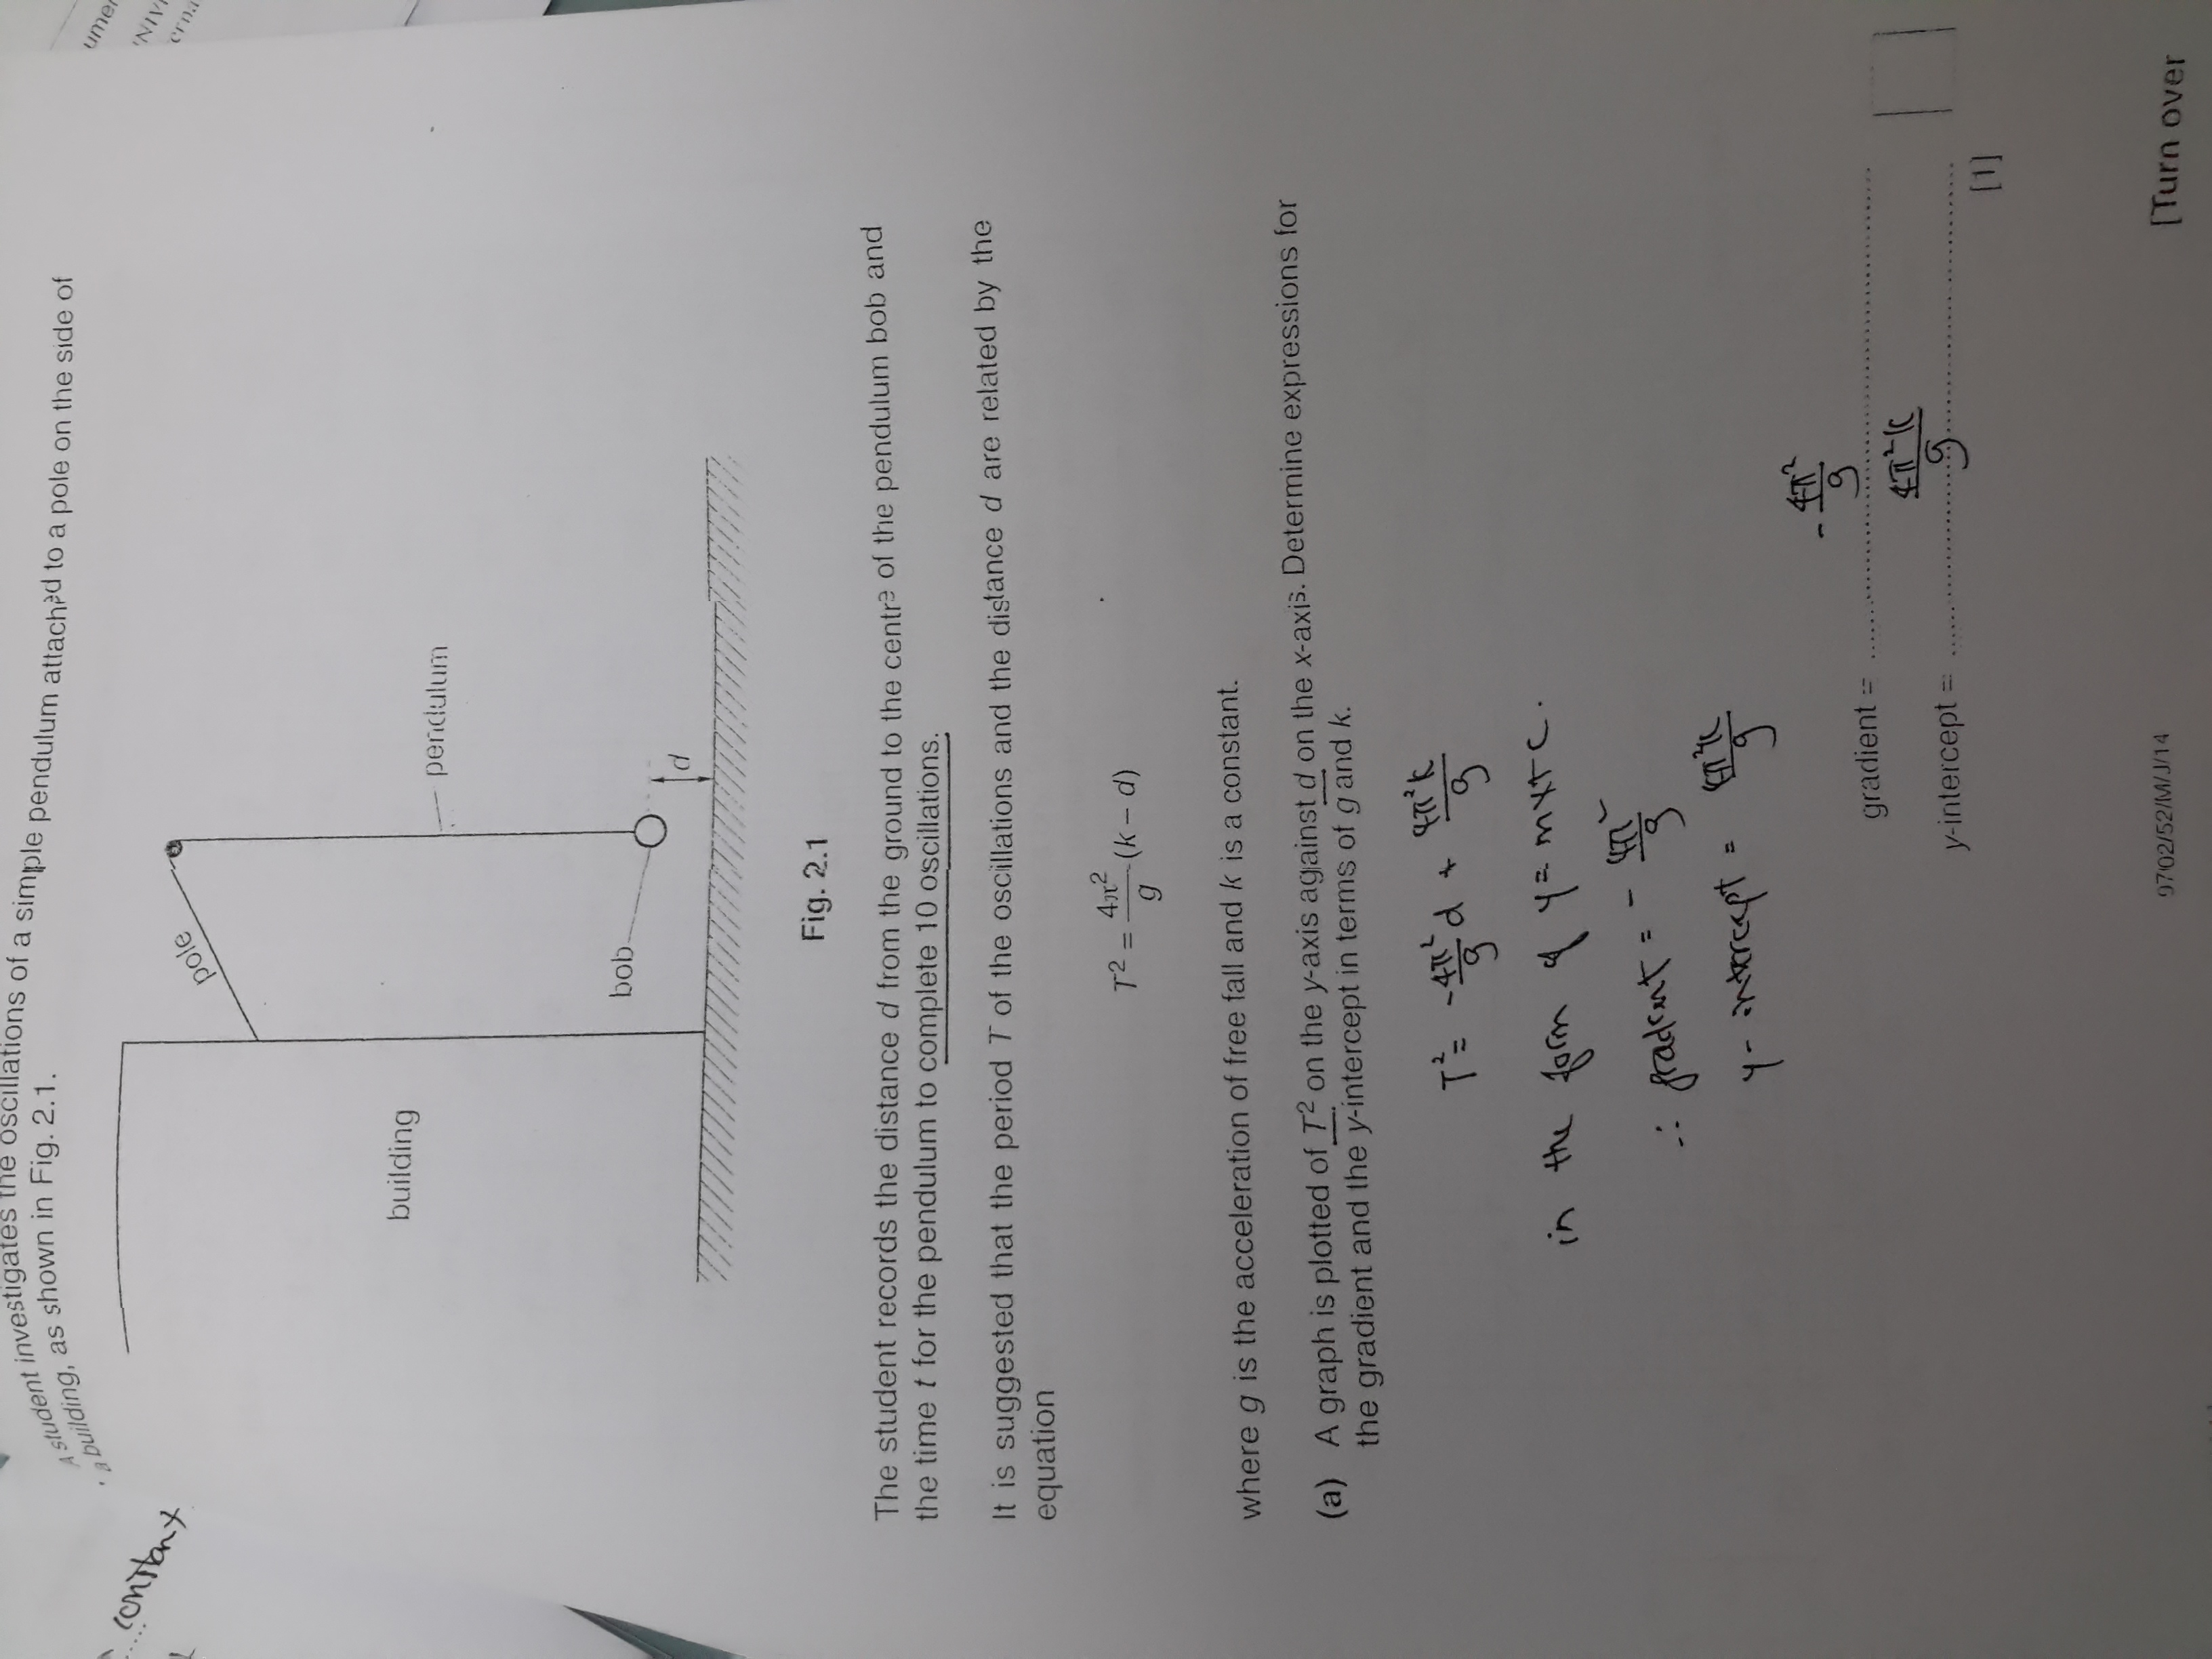 A student investigates the oscillations of a simple pendulum attached to a pole on the side of
a building, as shown in Fig. 2.1.
constant
pole
building
pendulum
bob
d
Fig. 2.1
The student records the distance d from the ground to the centre of the pendulum bob and
the time t for the pendulum to complete 10 oscillations.
It is suggested that the period T of the oscillations and the distance d are related by the
equation
T² = 4π²/g (k – d)
where g is the acceleration of free fall and k is a constant.
(a) A graph is plotted of T² on the y-axis against d on the x-axis. Determine expressions for
the gradient and the y-intercept in terms of g and k.
T² = -4π²/g d + 4π²k/g
in the form of y = mx + c.
∴ gradient = - 4π²/g
y-intercept = 4π²k/g
gradient = - 4π²/g
y-intercept = 4π²k/g
[1]
9702/52/M/J/14
[Turn over